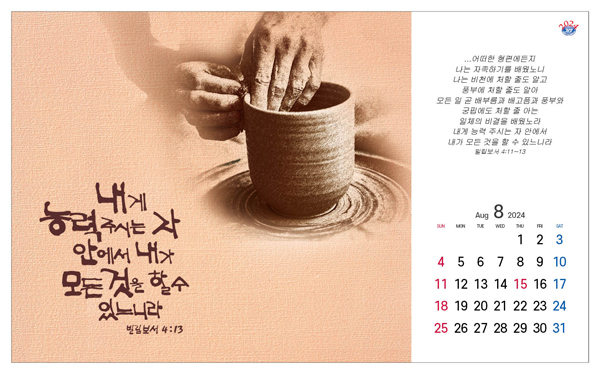 내게
능력주시는 자
안에서 내가
모든 것을 할수
있느니라
빌립보서 4:13
2024
...어떠한 형편에든지
나는 자족하기를 배웠노니
나는 비천에 처할 줄도 알고
풍부에 처할 줄도 알아
모든 일 곧 배부름과 배고픔과 풍부와
궁핍에도 처할 줄 아는
일체의 비결을 배웠노라
내게 능력 주시는 자 안에서
내가 모든 것을 할 수 있느니라
빌립보서 4:11-13
Aug 8 2024
SUN MON TUE WED THU FRI SAT
1 2 3
4 5 6 7 8 9 10
11 12 13 14 15 16 17
18 19 20 21 22 23 24
25 26 27 28 29 30 31